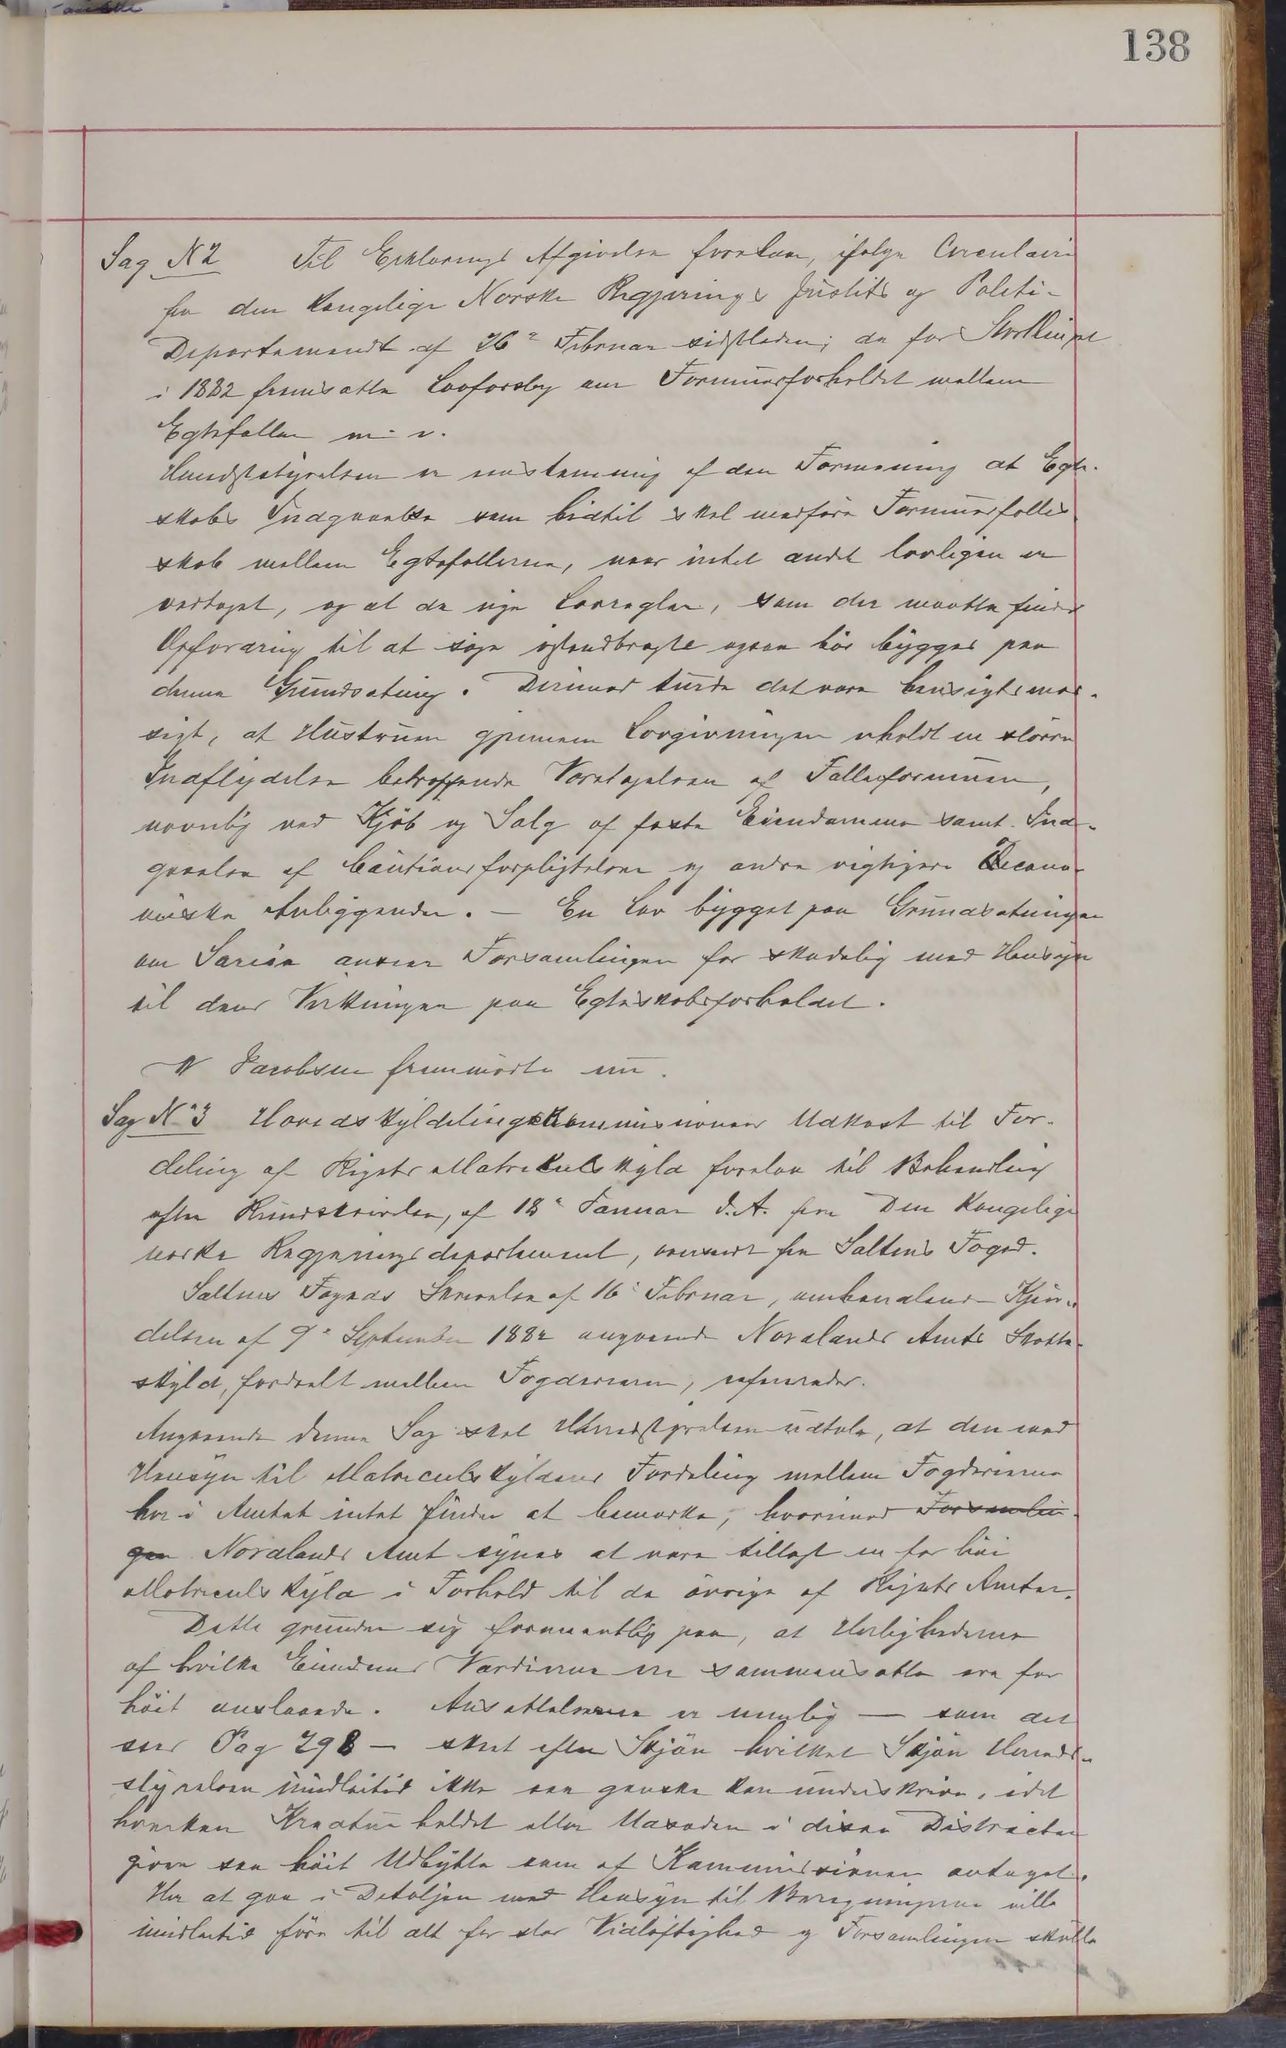 138
Sag N 2 Til Erklærings Afgivelse forelaae, ifølge Circulaire
fra den Kongelige Norske Regjerings Justits og Politi-
Departement af 26de Februar sidstleden; de for Storthinget
i 1882 fremsatte Lovforslag om Formuesforholdet mellem
Egtefæller m. v.
Herredsstyrelsen er enstemmig af den Formening at Egte-
skabs Indgaaelse som hidtil skal medføre Formuesfælles
skab mellem Egtefællerne, naar intet andet lovligen er
vedtaget, og at de nye Lovregler, som der maatte findes
Opfordring til at søge istandbragte ogsaa bør bygges paa
denne Grundsætning. Derimod turde det være hensigtsmæs-
sigt, at Hustruen gjennem Lovgivningen erholdt en større
Indflydelse betræffende Varetagelsen af Fællesformuen,
navnlig ved Kjøb og Salg af faste Eiendomme samt Ind-
gaaelse af Cautionsforpligtelser og andre vigtigere Oecono-
miske Anliggender. – En Lov bygget paa Grundsætningen
om Særeie anseer Forsamlingen for skadelig med Hensyn
til dens Virkninger paa Egteskabsforholdet.
N Jacobsen fremmødte nu.
Sag No 3 Hovedskyldelingskommissionens Udkast til For-
deling af Rigets Matrikulskyld forelaa til Behandling
efter Rundskrivelse, af 18de Januar d. A. fra Den Kongelige
norske Regjeringsdepartement, oversendt fra Saltens Foged.
Saltens Fogeds Skrivelse af 16de Februar, omhandlende Kjen-
delsen af 9de September 1882 angaaende Nordlands Amts Skatte-
skyld, fordelt mellem Fogderierne, refereredes.
Angaaende denne Sag skal Herredsstyrelsen udtale, at den med
Hensyn til Matriculskyldens Fordeling mellem Fogderierne
her i Amtet intet finder at bemærke, hvorimod Forsamlin-
gen Nordlands Amt synes at være tillagt en for høi
Matriculskyld i Forhold til de øvrige af Rigets Amter.
Dette grunder sig formentlig paa, at Herlighederne
af hvilke Eiendoms Værdierne ere sammensatte ere for
høit anslaaede. Ansættelserne er nemlig — som det
sees Pag 298 — skeet efter Skjøn hvilket Skjøn Herreds-
styrelsen imidlertid ikke saa ganske kan underskrive, idet
hverken Kreaturholdet eller Udsæden i disse Districter
giver saa høit Udbytte som af Kommissionen antaget.
Her at gaa i Detaljen med Hensyn til Beregningerne ville
imidlertid føre til alt for stor Vidløftighed og Forsamlingen skulle